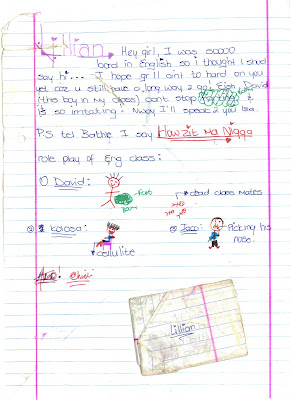 Lillian
Hey girl, I was sooooo
bord in English so I thought I shud
say hi... I hope gr 11 aint to hard on you
yet coz u still have a long way 2 go! Eish David
(this boy in my class) dont stop &
is so irritating. Nway I'll speak 2 you l8a
P.S tel Bathie I say Howzit Ma Nigga
role play of Eng class:
① David:
Fart
bum
*dead class mates
② Kolosa:
*cellulite
③ Jaco:
Picking his
nose.
Lillian